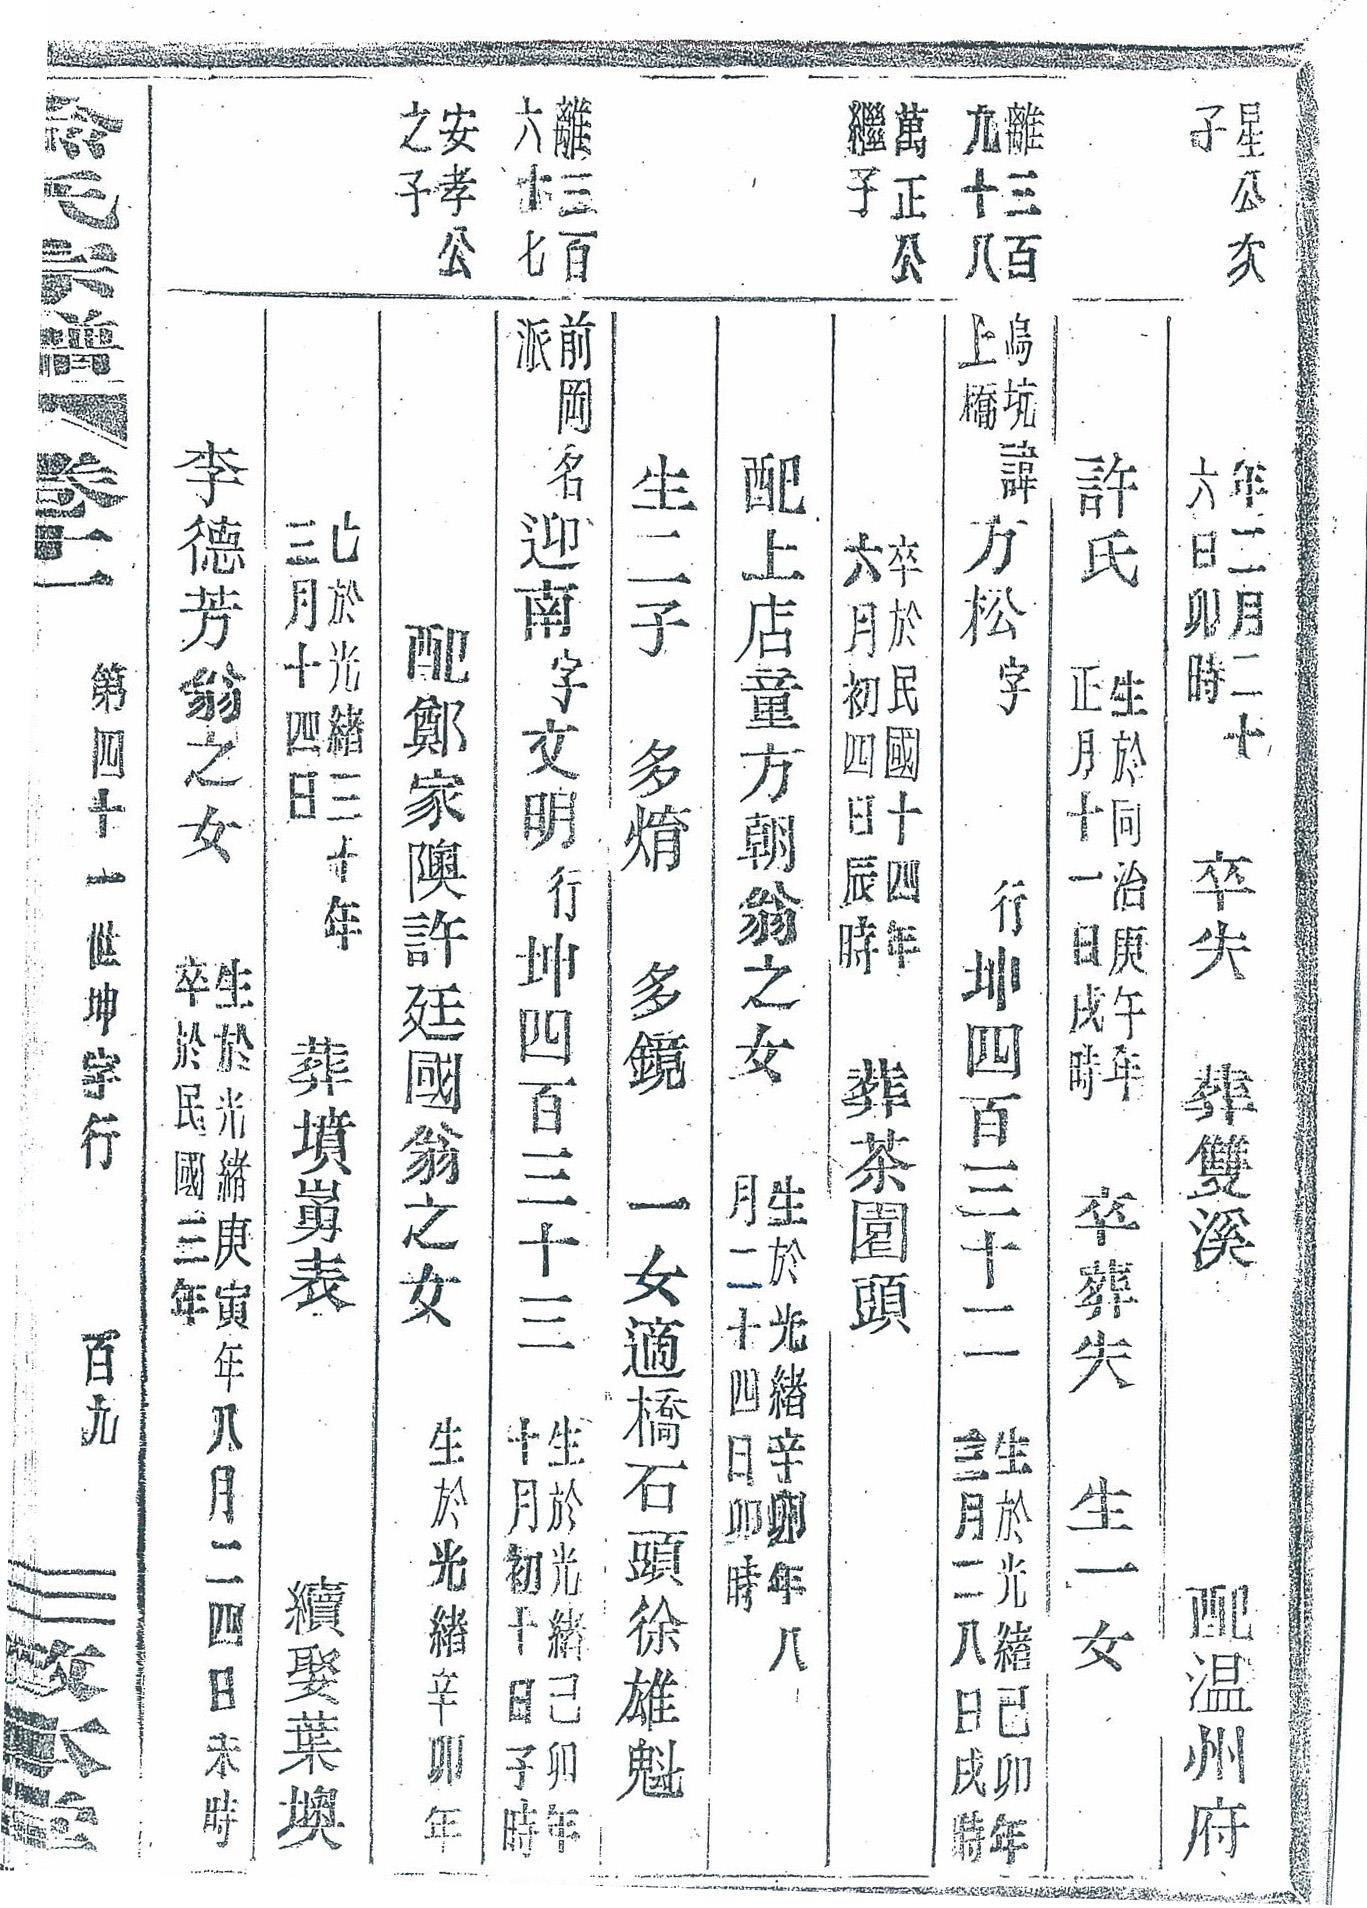 星公次
子
年二月二十
六日卯時
卒失 葬雙溪 配温州府
許氏
生於同治庚午年
正月十一日戌時
卒葬失 生一女
離三百
九十八
烏坑
上橋
諱方松字 行坤四百三十二
生於光緒己卯年
三月二八日戌時
萬正公
繼子
卒於民國十四年
六月初四日辰時
葬茶園頭
配上店童方朝翁之女
生於光緒辛卯年八
月二十四日卯時
生二子 多焇 多鏡 一女適橋石頭徐雄魁
離三百
六十七
前岡
派
名迎南字文明行坤四百三十三
生於光緒己卯年
十月初十日子時
安孝公
之子
配鄭家隩許廷國翁之女 生於光緒辛卯年
七於光緒三十年
三月十四日
葬墳 表 續娶葉墺
李德芳翁之女
生於光緒庚寅年八月二四日未時
卒於民國三年
氏宗譜 卷十一 第四十一世坤字行 百九 敦本堂